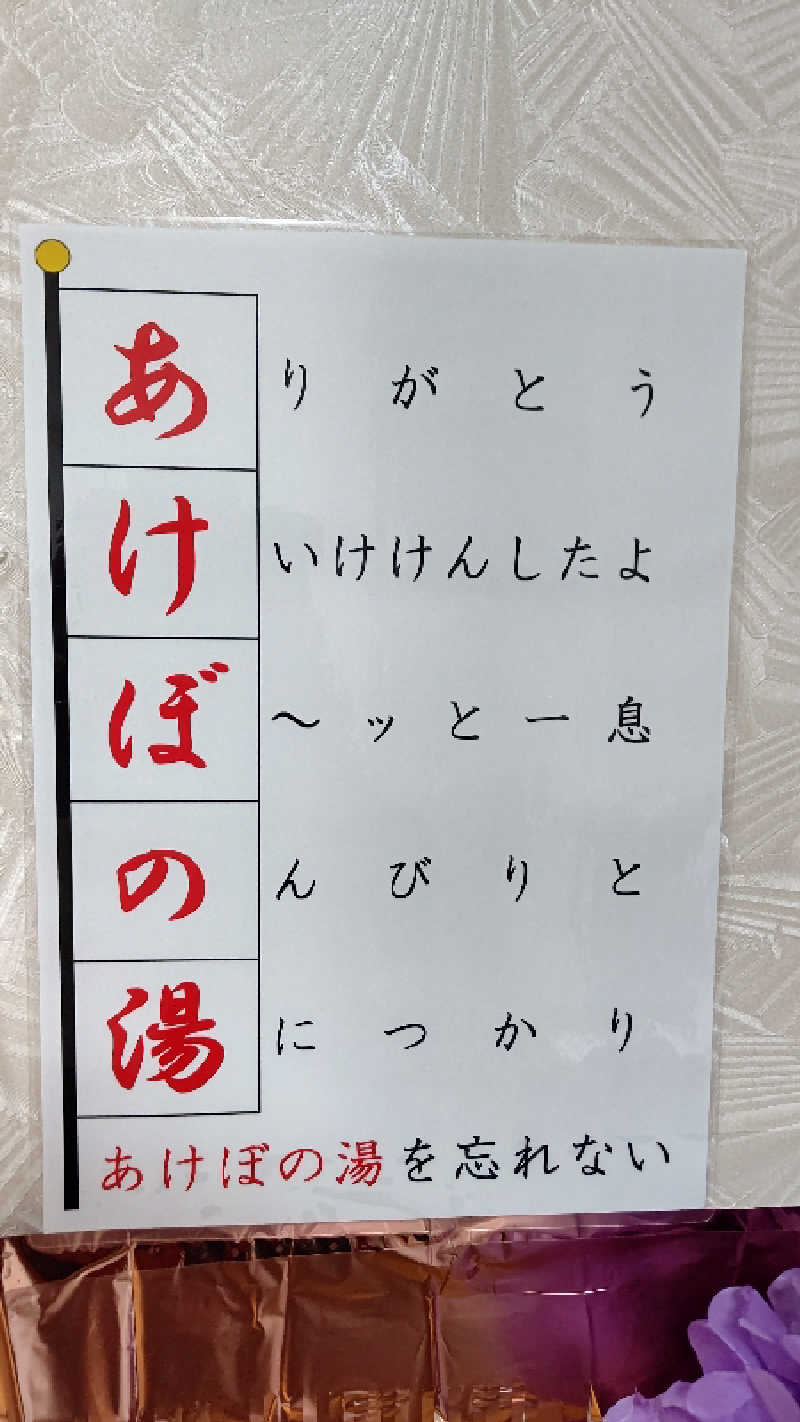 ありがとう
けいけけんしたよ
ぼ～ッと一息
のんびりと
湯につかり
あけぼの湯を忘れない